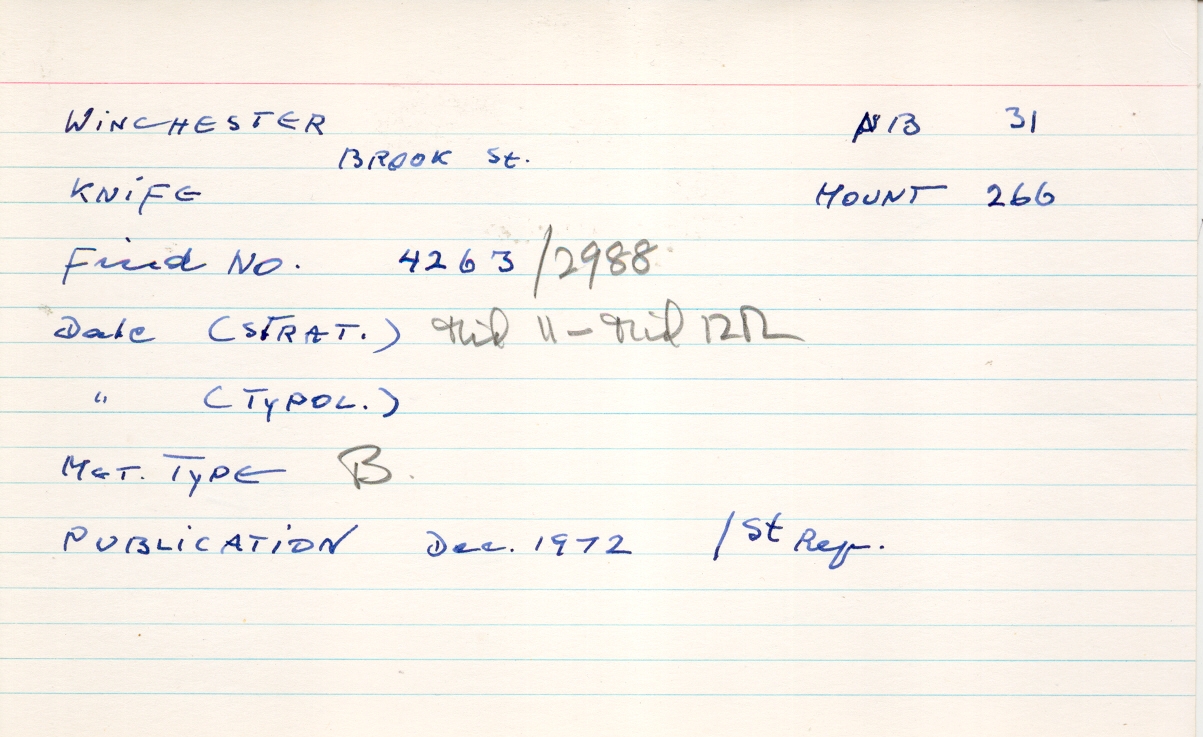 WINCHESTER NB 31
BROOK St.
KNIFE MOUNT 266
Find No. 4263/2988
Date (STRAT.) Mid 11 - Mid 12th
" (TYPOL.)
Met. TYPE B.
PUBLICATION Dec. 1972 1st Rep.